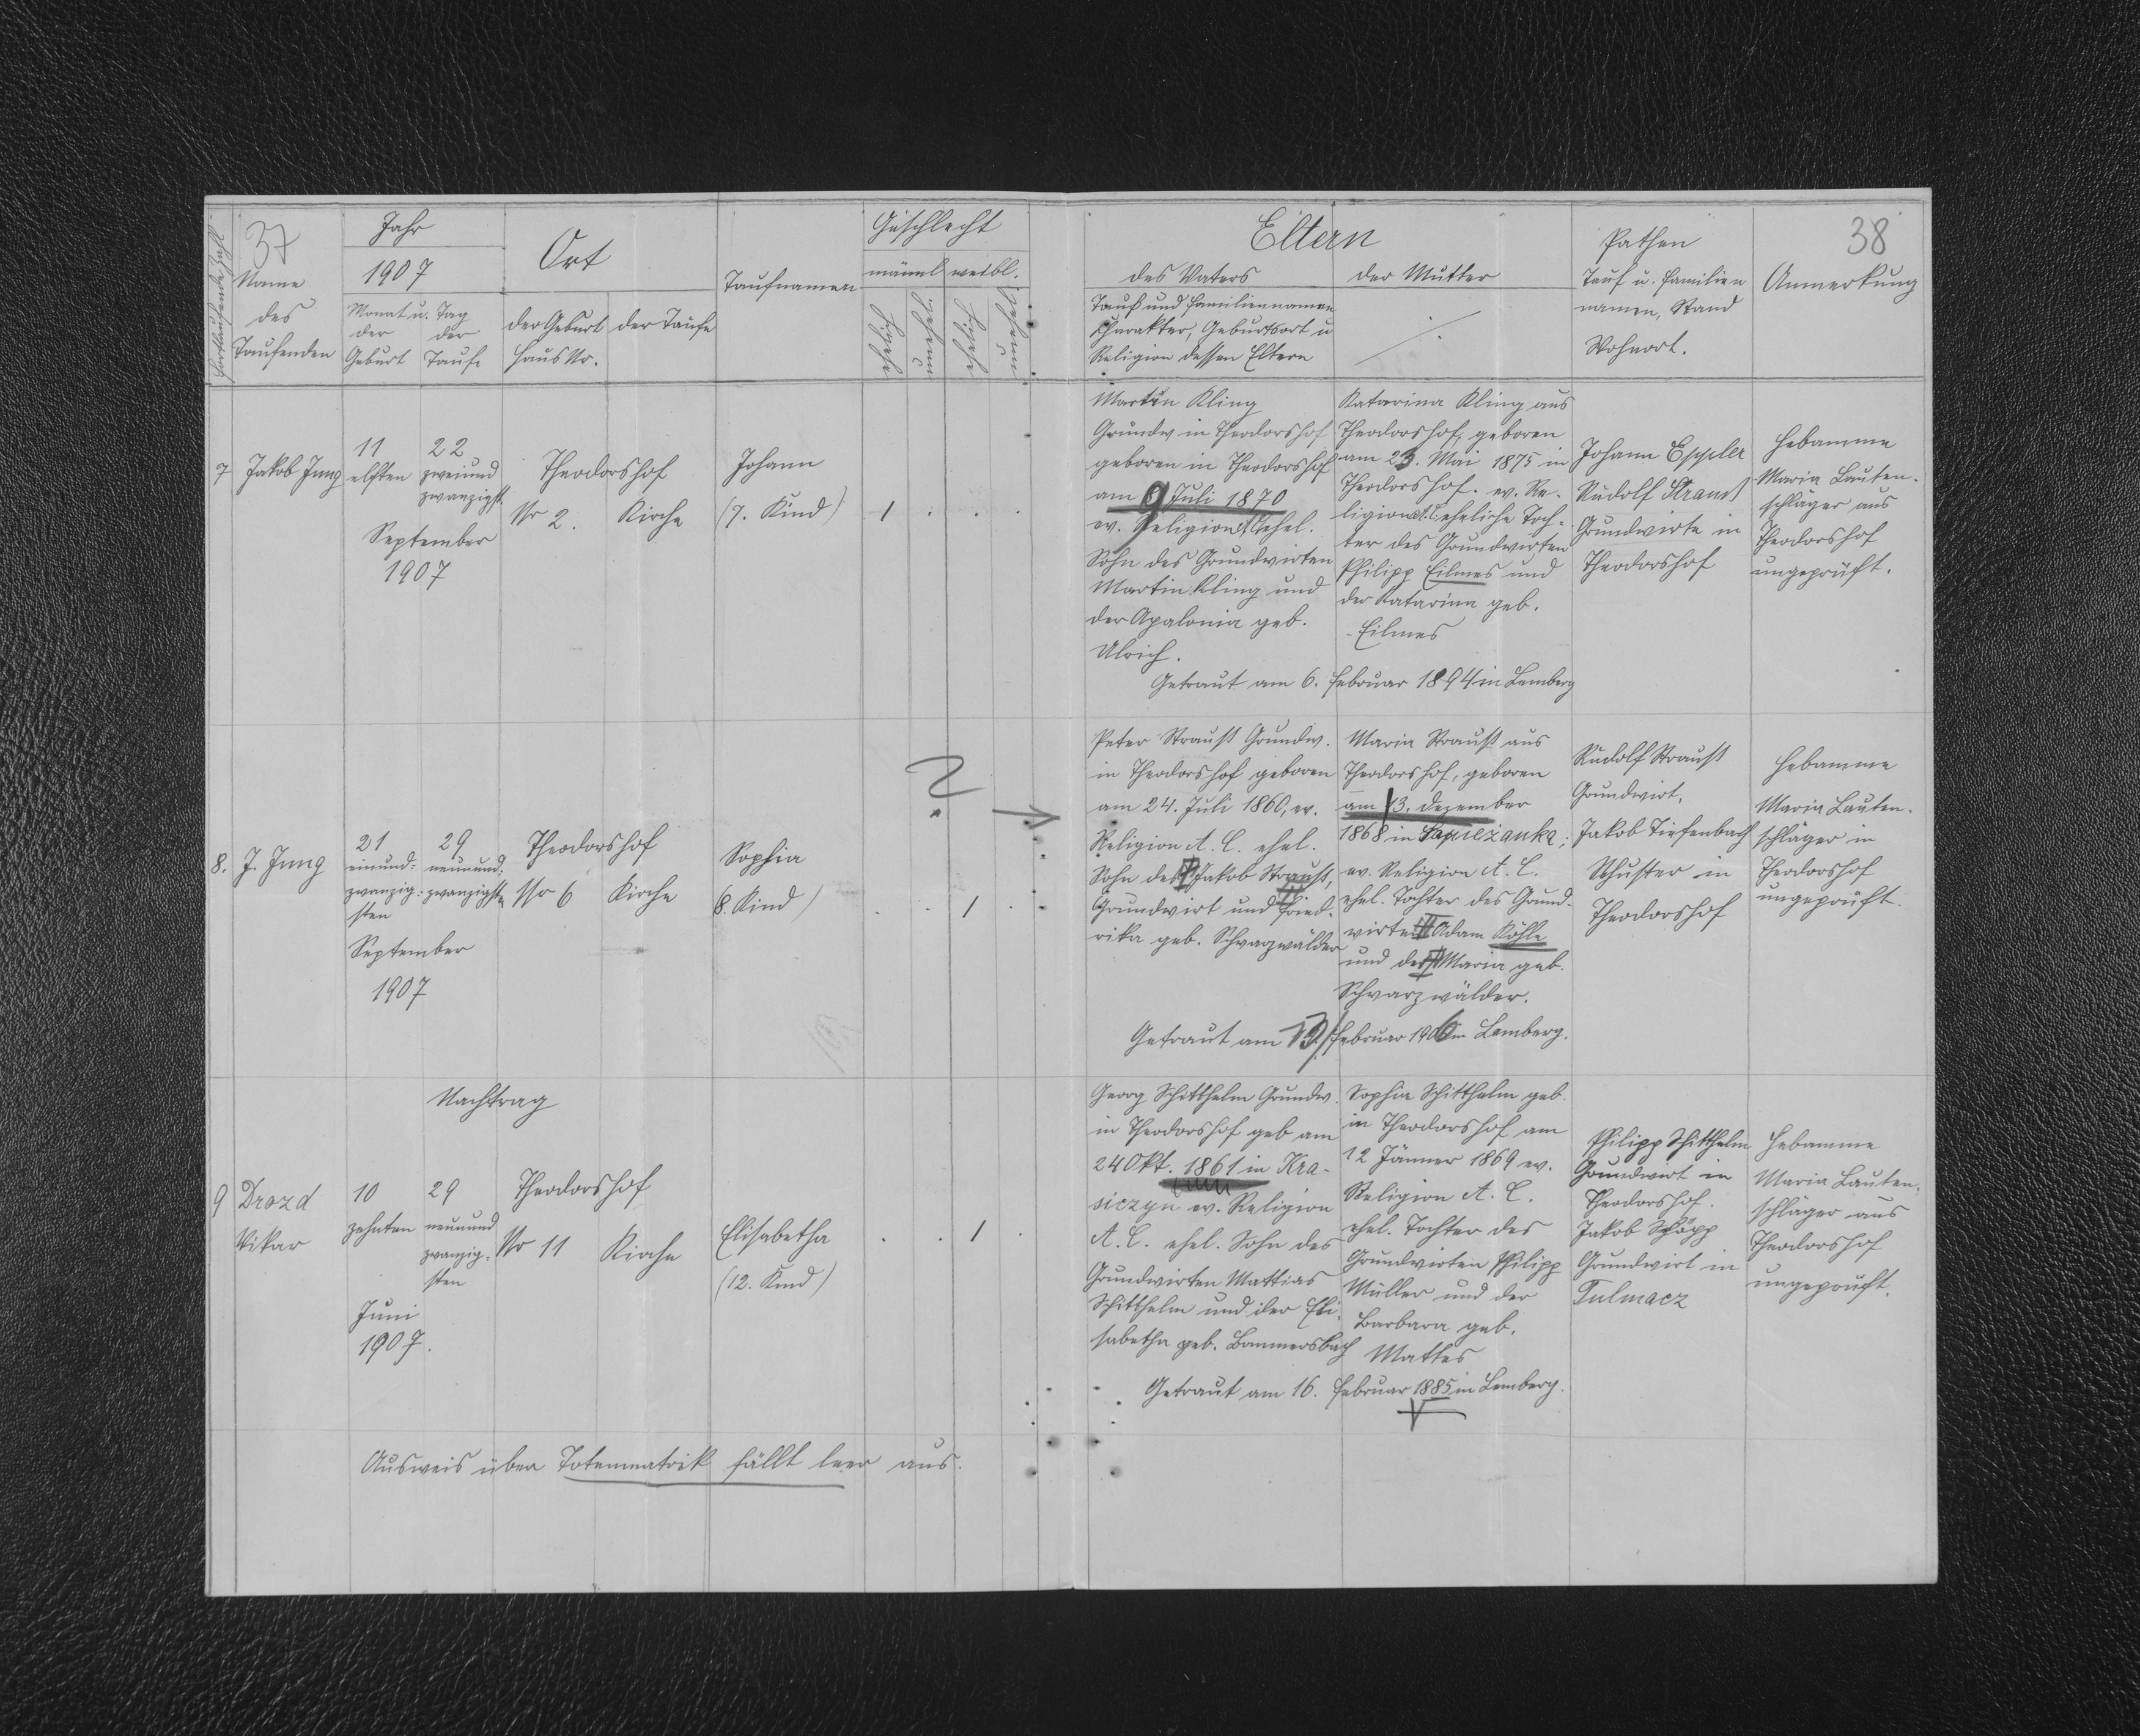 37
38
Fortlaufende Zahl
Name
des
Taufenden
Jahr
1907
Monat u. Tag
der der
Geburt Taufe
Ort
der Geburt der Taufe
Haus Nr.
Taufnamen
Geschlecht
männl weibl.
ehelich
unehel.
ehelich
unehel.
Eltern
des Vaters
der Mutter
Tauf und Familiennamen
Charakter, Geburtsort u
Religion dessen Eltern
Pathen
Tauf u. Familien
namen, Stand
Wohnort.
Anmerkung
7 Jakob Jung
11 22
elften zweiund
zwanzigst.
September
1907
Theodorshof
Nr 2. Kirche
Johann
(7. Kind)
1
Martin Kling
Grundw in Theodorshof
geboren in Theodorshof
am 8 Juli 1870
ev. Religion ehel.
Sohn des Grundwirten
Martin Kling und
der Apalonia geb.
Ulrich.
Katarina Kling aus
Theodorshof, geboren
am 23. Mai 1875 in
Theodorshof. ev. Re-
ligion A.C. eheliche Toch-
ter des Grundwirten
Philipp Eilmes und
der Katarina geb.
Eilmes
Getraut am 6. Februar 1894 in Lemberg
Johann Eppler
Rudolf Strauß
Grundwirte in
Theodorshof
Hebamme
Maria Lauten-
schläger aus
Theodorshof
ungeprüft.
8. J. Jung
21 29
einund- neunund-
zwanzig- zwanzigsten
sten
September
1907
Theodorshof
Nr 6 Kirche
Sophia
(8. Kind)
1
?
Peter Strauß Grundw.
in Theodorshof geboren
am 24. Juli 1860, ev.
Religion A. C. ehel.
Sohn des Jakob Strauß,
Grundwirt und Fried-
rika geb. Schwarzwälder
Maria Strauß aus
Theodorshof, geboren
am 13. Dezember
1868 in Sapieżanka;
ev. Religion A. C.
ehel. Tochter des Grund-
wirten Adam Köhle
und der Maria geb.
Schwarzwälder.
Getraut am 13. Februar 1906 in Lemberg.
Rudolf Strauß
Grundwirt,
Jakob Tiefenbach
Schuster in
Theodorshof
Hebamme
Maria Lauten-
schläger in
Theodorshof
ungeprüft.
Nachtrag
9 Drozd
Vikar
10 29
zehnten neunund
zwanzig-
sten
Juni
1907.
Theodorshof
Nr 11 Kirche
Elisabetha
(12. Kind)
1
Georg Schitthelm Grundw.
in Theodorshof geb am
24 Okt. 1861 in Kra-
siczyn ev. Religion
A. C. ehel. Sohn des
Grundwirten Mattias
Schitthelm und der Eli-
sabetha geb. Bommersbach
Sophia Schitthelm geb.
in Theodorshof am
12 Jänner 1869 ev.
Religion A. C.
ehel. Tochter des
Grundwirten Philipp
Müller und der
Barbara geb.
Mattes
Getraut am 16. Februar 1885 in Lemberg.
Philipp Schitthelm
Grundwirt in
Theodorshof.
Jakob Schöpp
Grundwirt in
Tulmacz
Hebamme
Maria Lauten-
schläger aus
Theodorshof
ungeprüft.
Ausweis über Totenmatrik fällt leer aus.